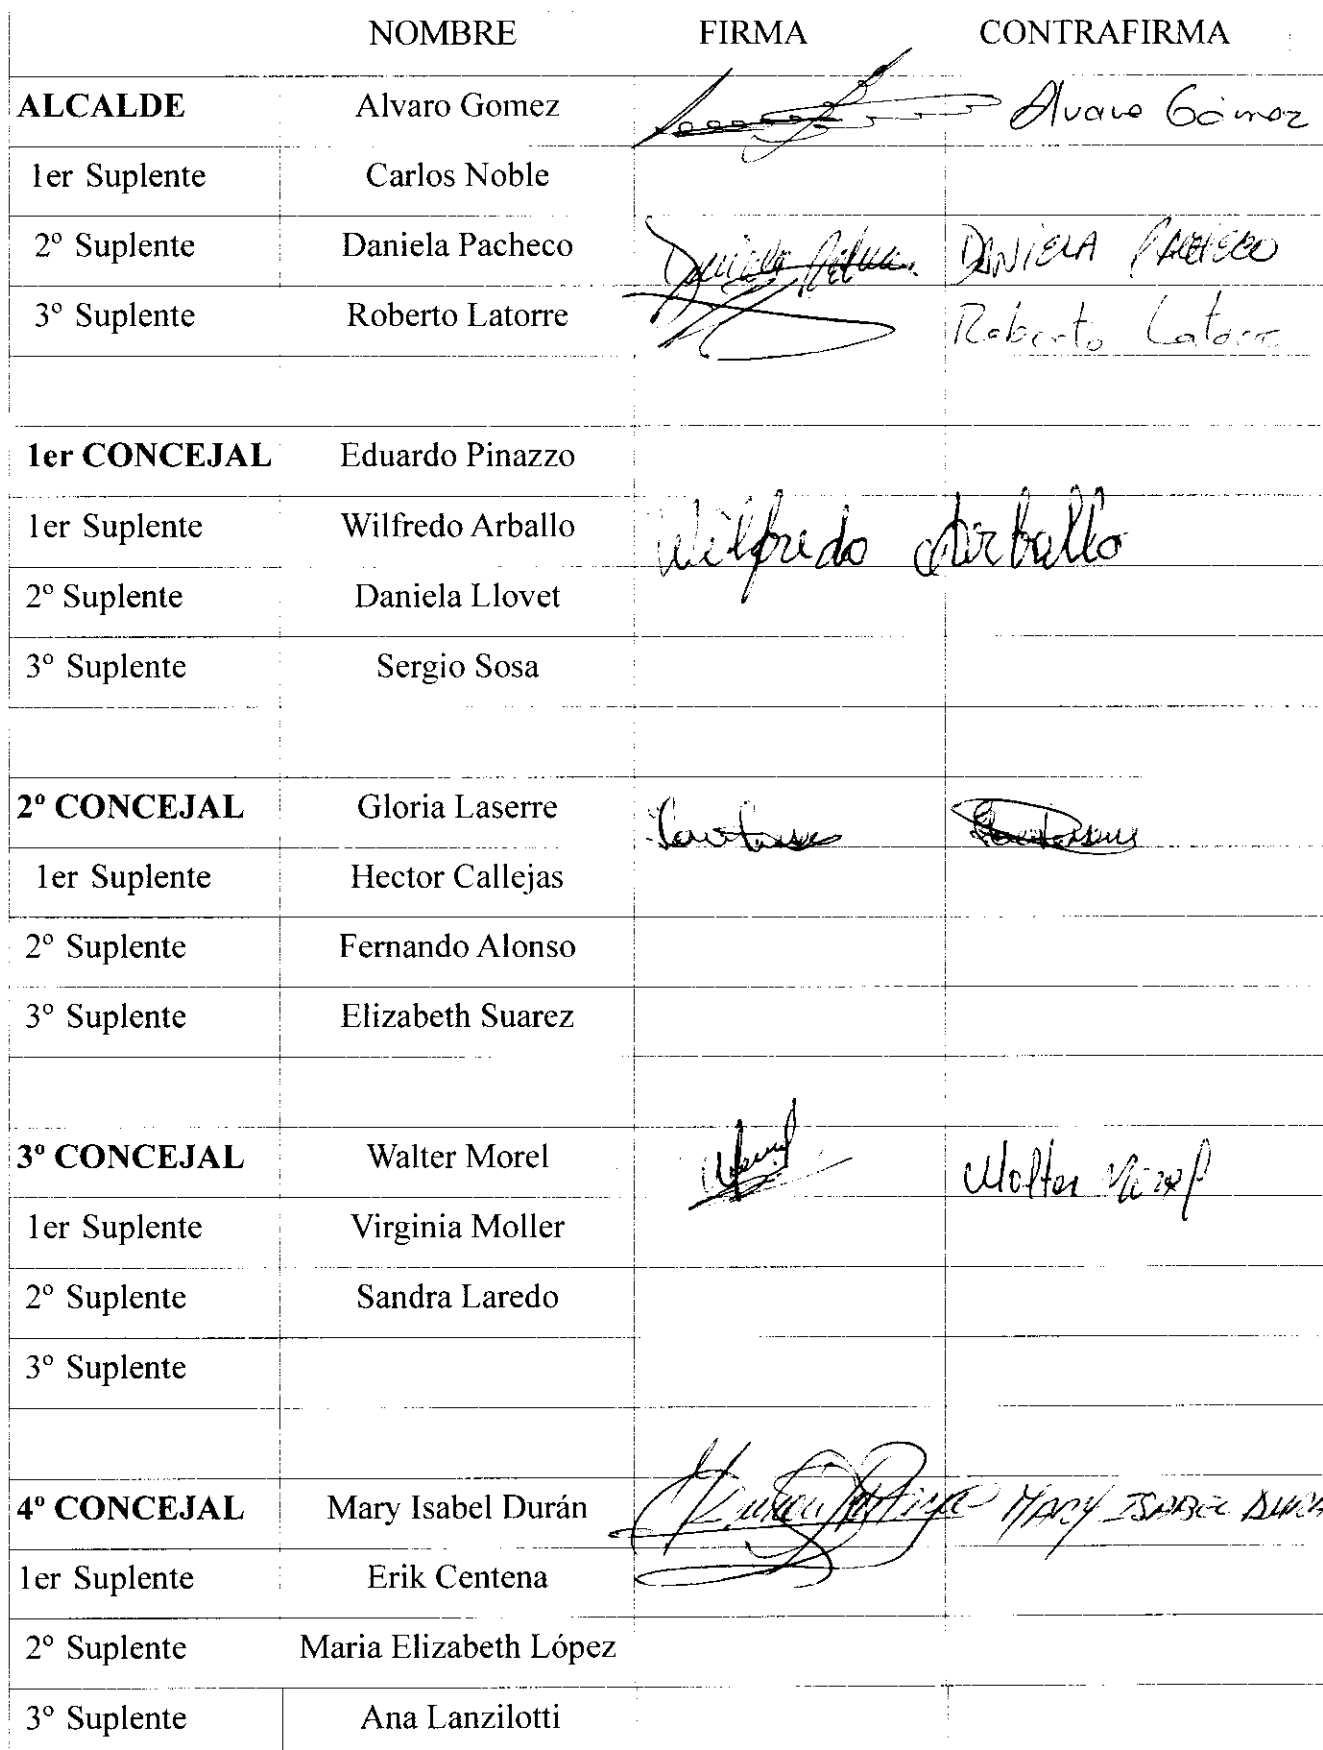 NOMBRE FIRMA CONTRAFIRMA
ALCALDE Alvaro Gomez Alvaro Gómez
1er Suplente Carlos Noble
2º Suplente Daniela Pacheco DANIELA PACHECO
3º Suplente Roberto Latorre Roberto Latorre
1er CONCEJAL Eduardo Pinazzo
1er Suplente Wilfredo Arballo Wilfredo Arballo
2º Suplente Daniela Llovet
3º Suplente Sergio Sosa
2º CONCEJAL Gloria Laserre
1er Suplente Hector Callejas
2º Suplente Fernando Alonso
3º Suplente Elizabeth Suarez
3º CONCEJAL Walter Morel Walter Morel
1er Suplente Virginia Moller
2º Suplente Sandra Laredo
3º Suplente
4º CONCEJAL Mary Isabel Durán MARY ISABEL
1er Suplente Erik Centena
2º Suplente Maria Elizabeth López
3º Suplente Ana Lanzilotti